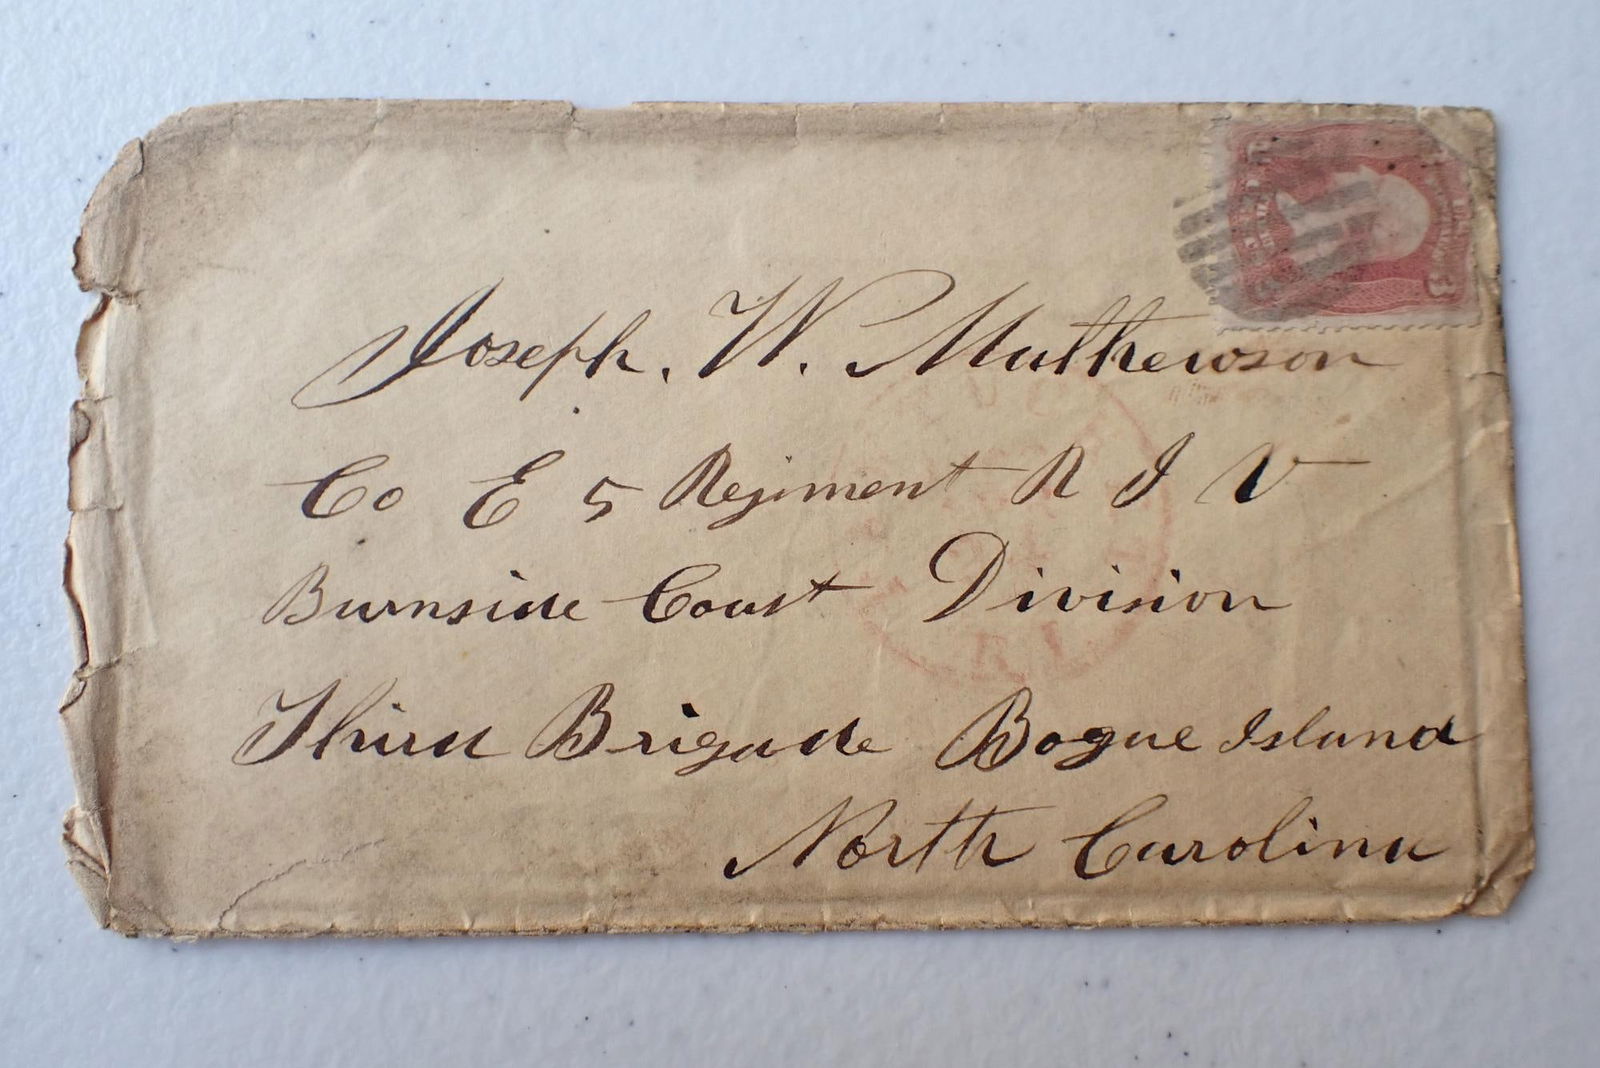 Joseph. W. Mathewson
Co E 5 Regiment R I V
Burnside Coast Division
Third Brigade Bogue Island
North Carolina
R.I.